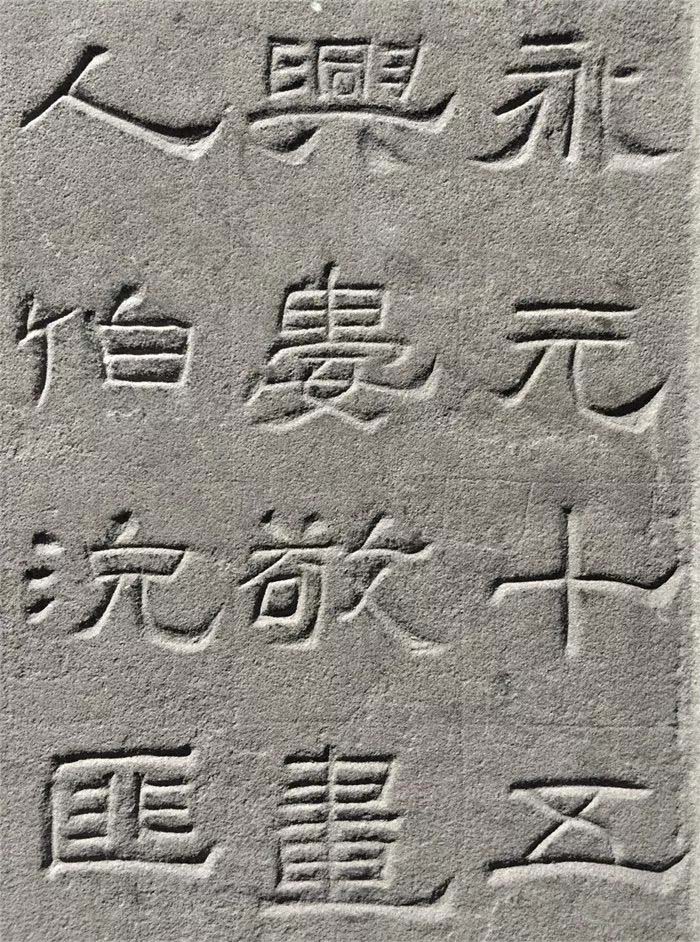 永元十五
興婁敬畫
人伯沉匪